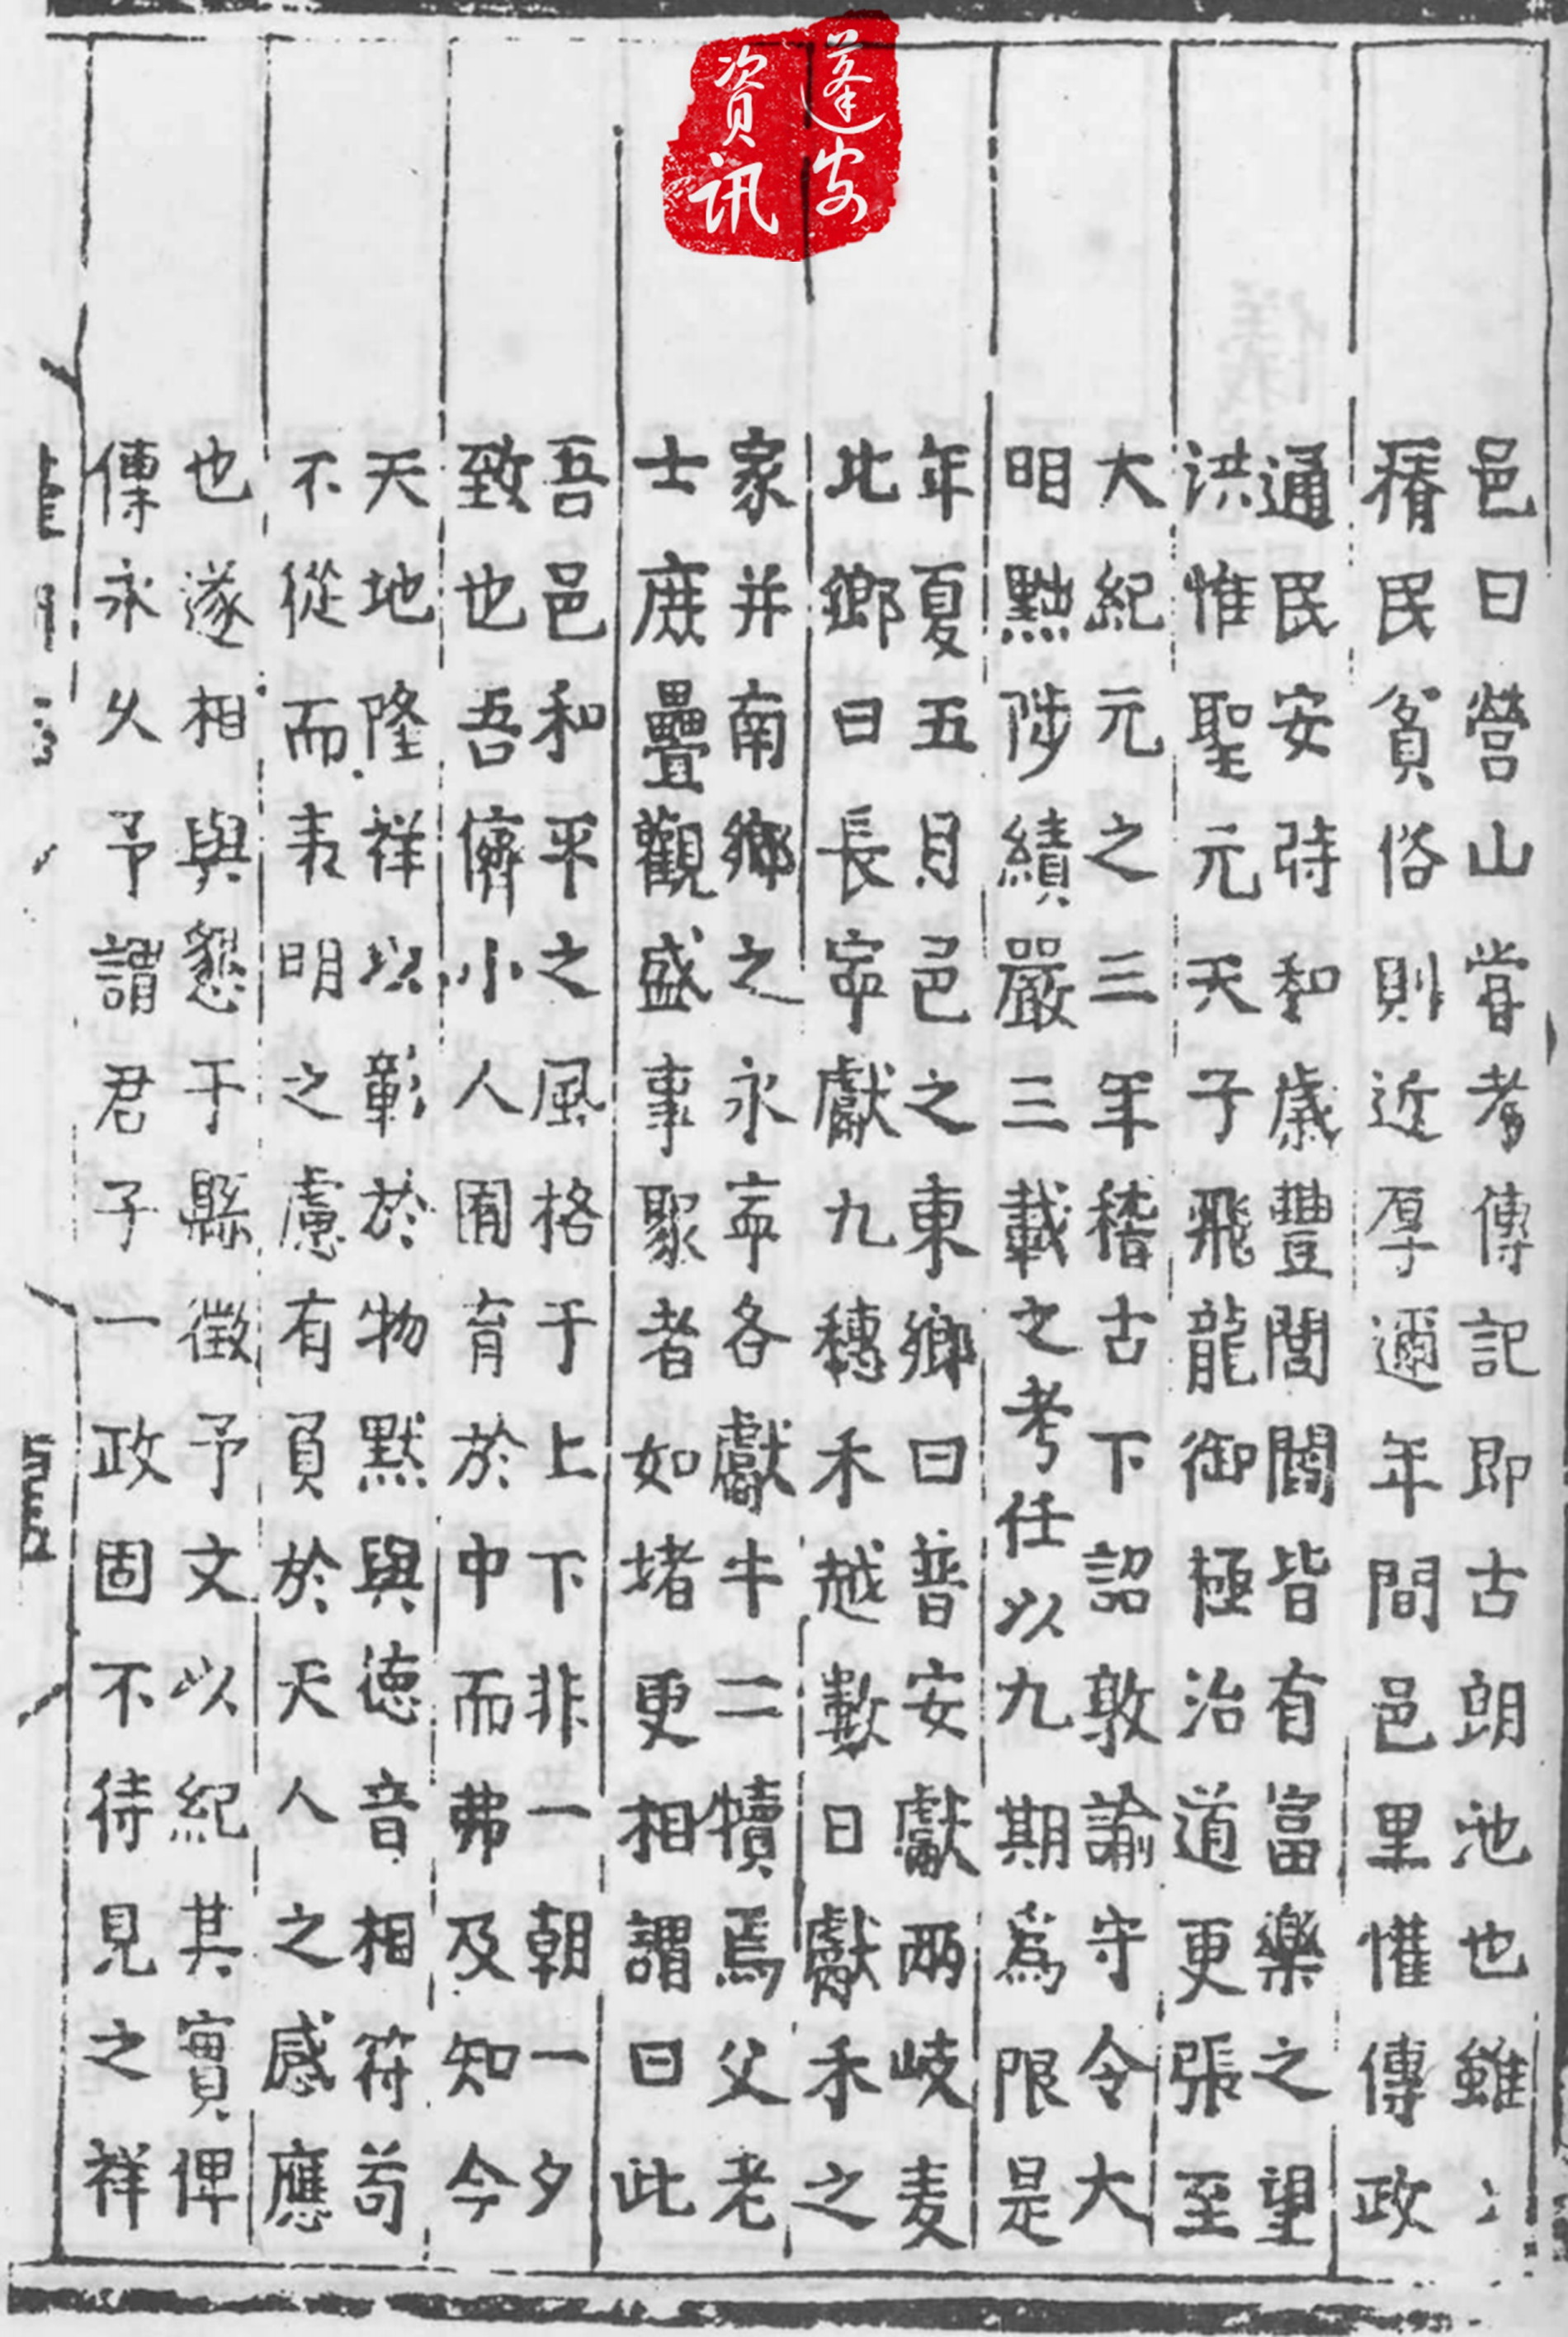 蓬安
資訊
邑曰營山嘗考傳記即古朗池也雖
瘠民貧俗則近厚邇年間邑里懽傳政
通民安時和歲豐閭閻皆有富樂之望
洪惟聖元天子飛龍御極治道更張至
大紀元之三年稽古下詔敦諭守令大
明黜陟績嚴三載之考任以九期為限是
年夏五月邑之東鄉曰普安獻兩岐麦
北鄉曰長寧獻九穗禾越數日獻禾之
家并南鄉之永寧各獻牛二犢焉父老
士庶疊觀盛事聚者如堵更相謂曰此
吾邑和平之風格于上下非一朝一夕
致也吾儕小人囿育於中而弗及知今
天地隆祥以彰於物默與徳音相符苟
不從而表明之慮有負於天人之感應
也遂相與懇于縣徵予文以紀其實俾
傳永久予謂君子一政固不待見之祥